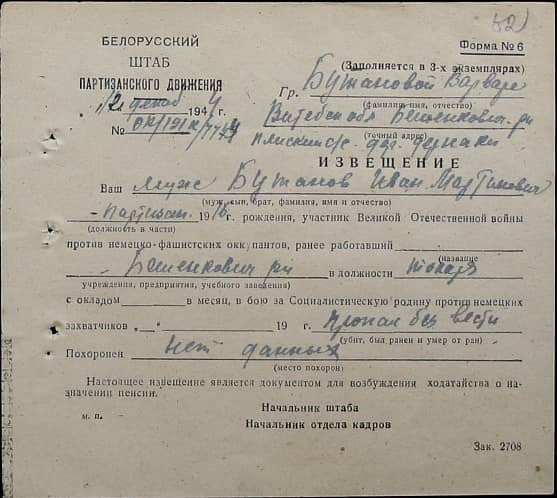 52
БЕЛОРУССКИЙ
ШТАБ
ПАРТИЗАНСКОГО ДВИЖЕНИЯ
Форма № 6
(Заполняется в 3-х экземплярах)
12 декаб 1944 г.
Гр. Бутановой Варваре
(фамилия имя, отчество)
№ ОК/191к/
Витебск обл Бешенкович. р-н
(точный адрес)
с/с дер.
ИЗВЕЩЕНИЕ
Ваш муж Бутанов Иван Мартинович
(муж, сын, брат, фамилия, имя и отчество)
- партизан. 191 г. рождения, участник Великой Отечественной войны
(должность в части)
против немецко-фашистских оккупантов, ранее работавший
(название
Бешенкович р-н в должности токаря
учреждения, предприятия, учебного заведения)
с окладом в месяц, в бою за Социалистическую родину против немецких
захватчиков „ “ 19 г. пропал без вести
(убит, был ранен и умер от ран)
Похоронен нет данных
(место похорон)
Настоящее извещение является документом для возбуждения ходатайства о на-
значении пенсии.
Начальник штаба
м. п.
Начальник отдела кадров
Зак. 2708